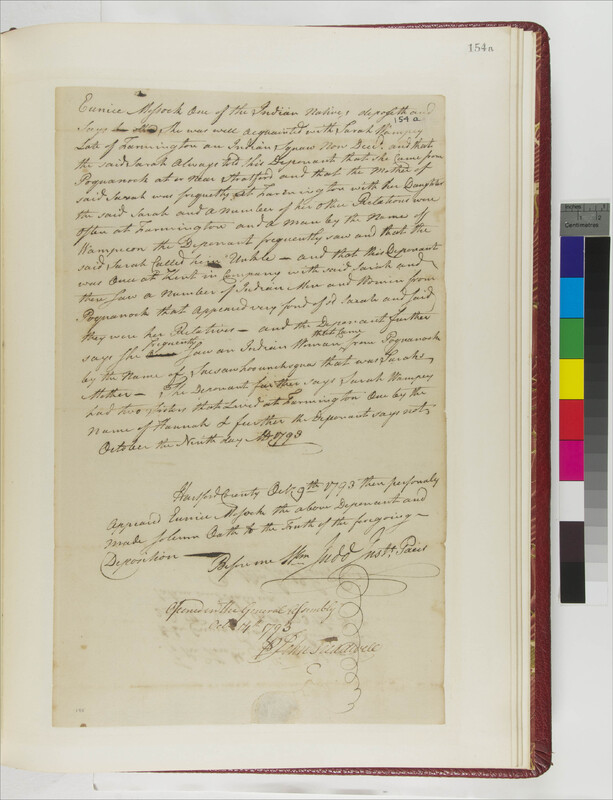 154a
Eunice Mossock One of the Indian Natives deposeth and
Says She was well acquainted with Sarah Wampey
154 a
Late of Farmington an Indian Squaw Now Decd. and that
the said Sarah Always told this Deponant that she Came from
Poquanock at or Near Stratford and that the Mother of
said Sarah was frequently at Farmington with her Daughter
the said Sarah and a Number of her Other Relations were
often at Farmington and a Man by the Name of
Wampeon the Deponant frequently saw and that the
said Sarah Called him Unkle – and that this Deponant
was Once at Kent in Company with said Sarah and
there Saw a Number of Indian Men and Women from
Poquanock that appeared very fond of sd Sarah and said
they were her Relatives – and the Deponant further
says She frequently saw an Indian Woman that Came from Poquanock
by the Name of that was Sarahs
Mother – The Deponant further says Sarah Wampey
had two Sisters that Lived at Farmington One by the
Name of Hannah & further the Deponant says not
October the Ninth day AD 1793
Hartford County Octr. 9th 1793 then personaly
Appeard Eunice Mossock the above Deponant and
Made Solemn Oath to the Truth of the foregoing –
Deposition
Before me Wm Judd Just. Pacis
Opened in the General Assembly
Oct 14th 1793
Inches
Centimetres